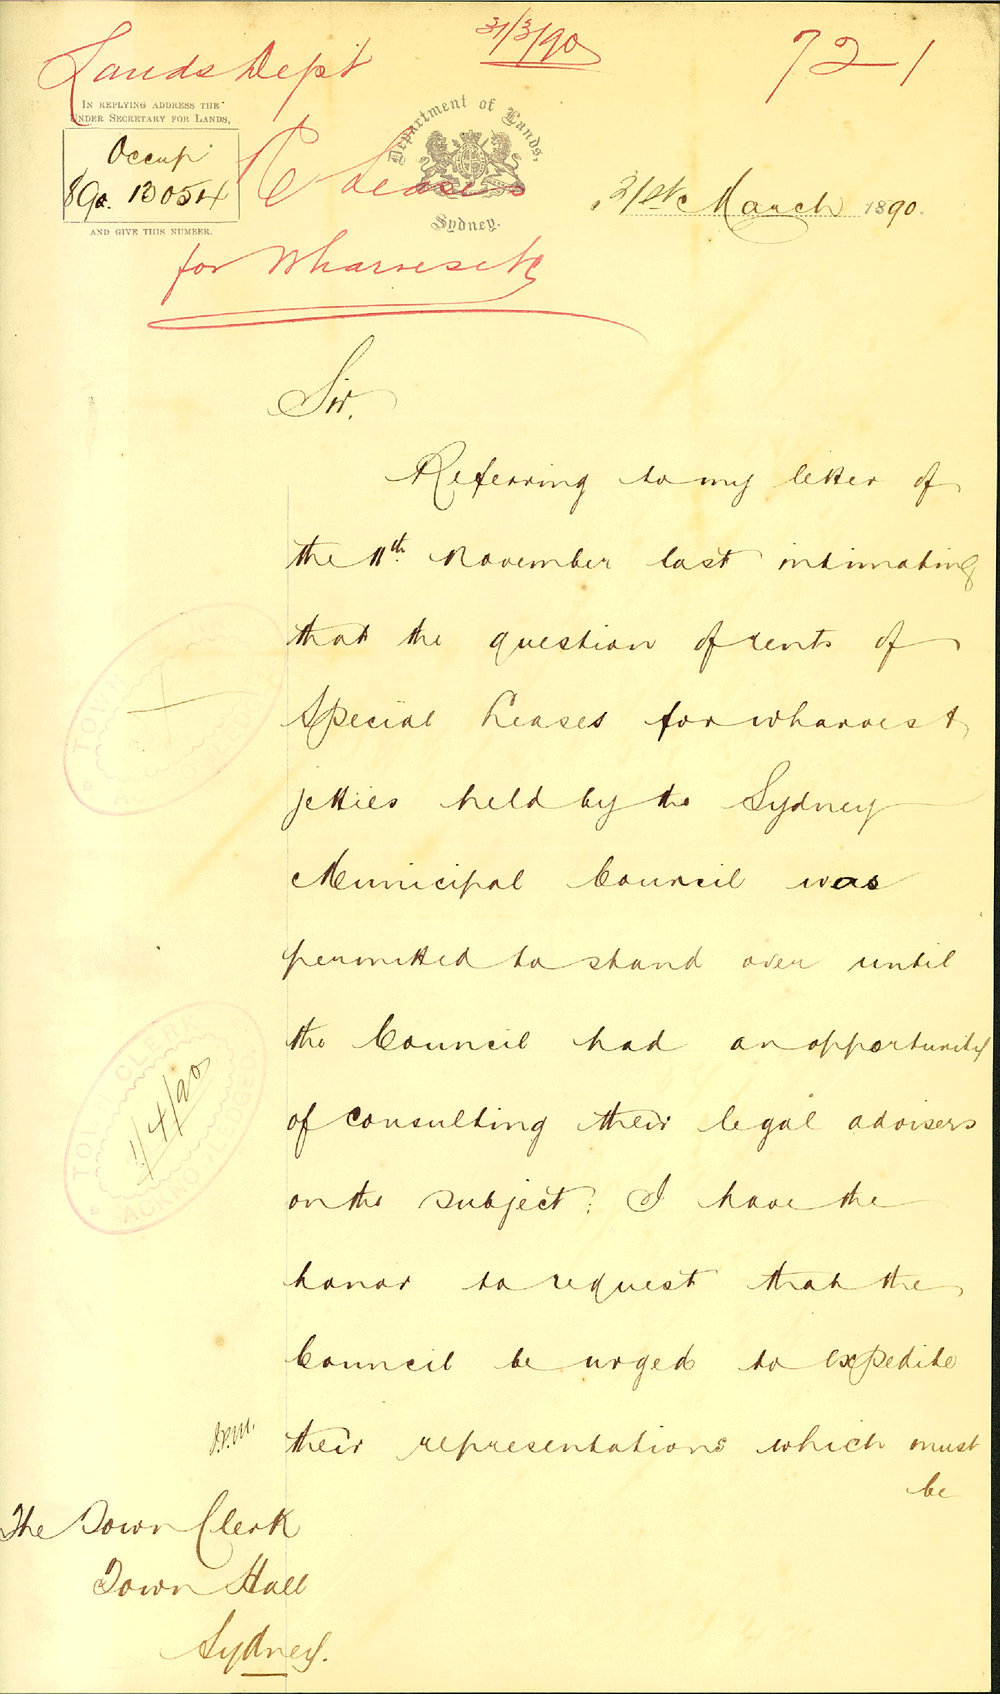 31/3/90
721
Lands Dept
IN REPLYING ADDRESS THE
UNDER SECRETARY FOR LANDS,
Occup
90. 13054
AND GIVE THIS NUMBER.
Department of Lands,
Sydney.
Leases
for Wharves etc
31st March 1890.
Sir,
Referring to my letter of
the 11th. November last intimating
that the question of rents of
Special Leases for wharves &
jetties held by the Sydney
Municipal Council was
permitted to stand over until
the Council had an opportunity
of consulting their legal advisers
on the subject: I have the
honor to request that the
Council be urged to expedite
their representations which must
be
The Town Clerk
Town Hall
Sydney.
TOWN
TOWN CLERK
1/4/90
ACKNOWLEDGED